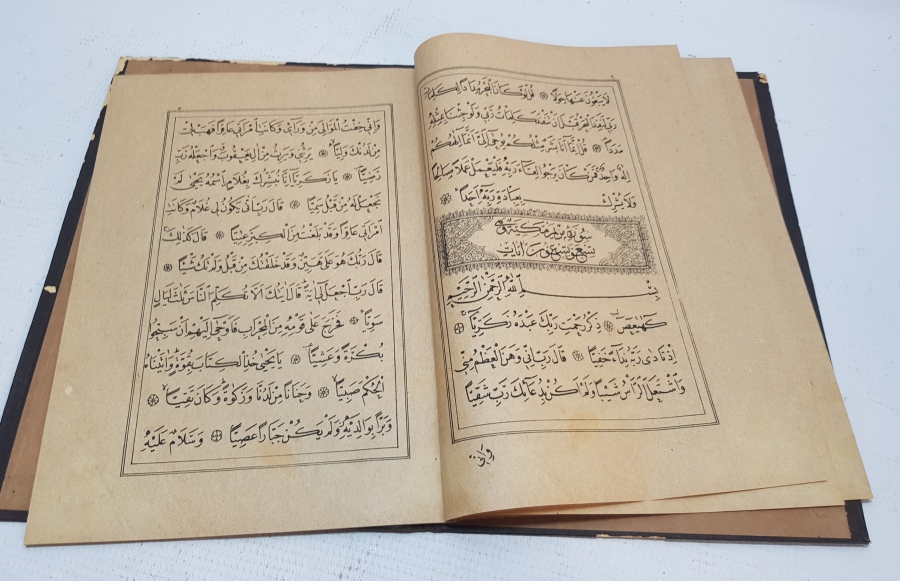 لَا يَبْغُونَ عَنْهَا حِوَلًا ۝ قُلْ لَوْ كَانَ الْبَحْرُ مِدَادًا لِكَلِمَاتِ
رَبِّي لَنَفِدَ الْبَحْرُ قَبْلَ أَنْ تَنْفَدَ كَلِمَاتُ رَبِّي وَلَوْ جِئْنَا بِمِثْلِهِ
مَدَدًا ۝ قُلْ إِنَّمَا أَنَا بَشَرٌ مِثْلُكُمْ يُوحَى إِلَيَّ أَنَّمَا إِلَهُكُمْ
إِلَهٌ وَاحِدٌ فَمَنْ كَانَ يَرْجُوا لِقَاءَ رَبِّهِ فَلْيَعْمَلْ عَمَلًا صَالِحًا
وَلَا يُشْرِكْ بِعِبَادَةِ رَبِّهِ أَحَدًا ۝
سورة مريم مكية وهي
تسع وتسعون آيات
بِسْمِ اللَّهِ الرَّحْمَنِ الرَّحِيمِ
كهيعص ۝ ذِكْرُ رَحْمَتِ رَبِّكَ عَبْدَهُ زَكَرِيَّا ۝
إِذْ نَادَى رَبَّهُ نِدَاءً خَفِيًّا ۝ قَالَ رَبِّ إِنِّي وَهَنَ الْعَظْمُ مِنِّي
وَاشْتَعَلَ الرَّأْسُ شَيْبًا وَلَمْ أَكُنْ بِدُعَائِكَ رَبِّ شَقِيًّا
وَإِنِّي
وَإِنِّي خِفْتُ الْمَوَالِيَ مِنْ وَرَائِي وَكَانَتِ امْرَأَتِي عَاقِرًا فَهَبْ لِي
مِنْ لَدُنْكَ وَلِيًّا ۝ يَرِثُنِي وَيَرِثُ مِنْ آلِ يَعْقُوبَ وَاجْعَلْهُ رَبِّ
رَضِيًّا ۝ يَا زَكَرِيَّا إِنَّا نُبَشِّرُكَ بِغُلَامٍ اسْمُهُ يَحْيَى لَمْ
نَجْعَلْ لَهُ مِنْ قَبْلُ سَمِيًّا ۝ قَالَ رَبِّ أَنَّى يَكُونُ لِي غُلَامٌ وَكَانَتِ
امْرَأَتِي عَاقِرًا وَقَدْ بَلَغْتُ مِنَ الْكِبَرِ عِتِيًّا ۝ قَالَ كَذَلِكَ
قَالَ رَبُّكَ هُوَ عَلَيَّ هَيِّنٌ وَقَدْ خَلَقْتُكَ مِنْ قَبْلُ وَلَمْ تَكُ شَيْئًا ۝
قَالَ رَبِّ اجْعَلْ لِي آيَةً قَالَ آيَتُكَ أَلَّا تُكَلِّمَ النَّاسَ ثَلَاثَ لَيَالٍ
سَوِيًّا ۝ فَخَرَجَ عَلَى قَوْمِهِ مِنَ الْمِحْرَابِ فَأَوْحَى إِلَيْهِمْ أَنْ سَبِّحُوا
بُكْرَةً وَعَشِيًّا ۝ يَا يَحْيَى خُذِ الْكِتَابَ بِقُوَّةٍ وَآتَيْنَاهُ
الْحُكْمَ صَبِيًّا ۝ وَحَنَانًا مِنْ لَدُنَّا وَزَكَوةً وَكَانَ تَقِيًّا ۝
وَبَرًّا بِوَالِدَيْهِ وَلَمْ يَكُنْ جَبَّارًا عَصِيًّا ۝ وَسَلَامٌ عَلَيْهِ